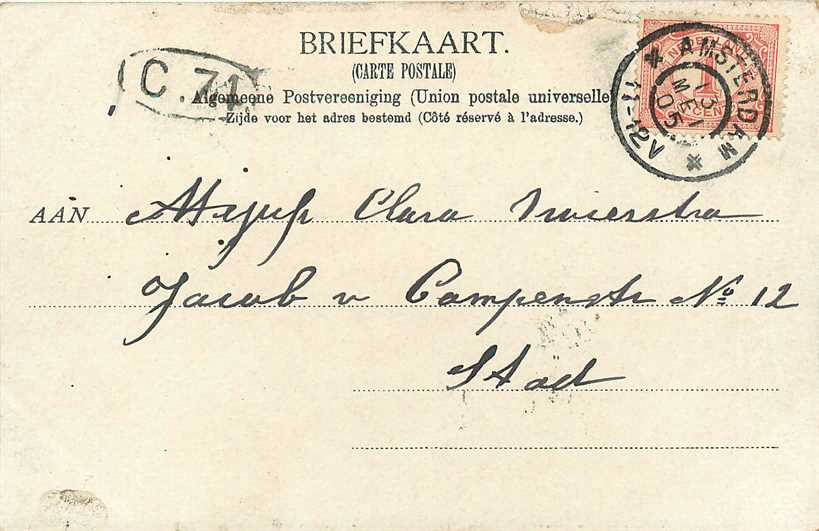 BRIEFKAART.
(CARTE POSTALE)
Algemeene Postvereeniging (Union postale universelle)
Zijde voor het adres bestemd (Côté réservé à l'adresse.)
C. 71
NEDERLAND
1
CENT
AMSTERDAM
13
MEI
05
11-12V
AAN Mejuf Clara
Jacob v Campenstr No 12
Stad